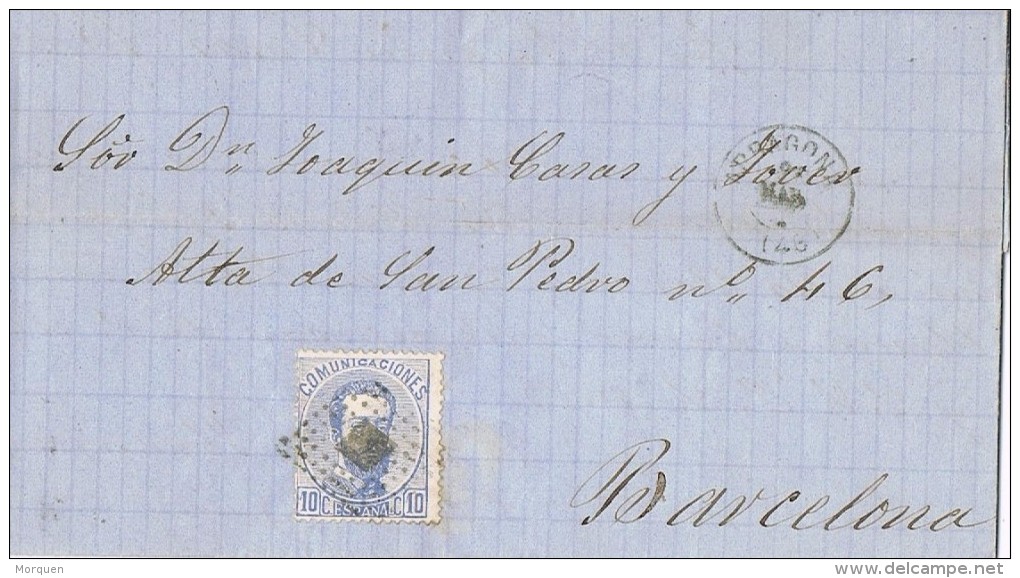 Sor Dn Joaquin Casas y Jover
Alta de San Pedro nº 46,
Barcelona
COMUNICACIONES
10 C. ESPAÑA C 10
Morquen
delcampe.net